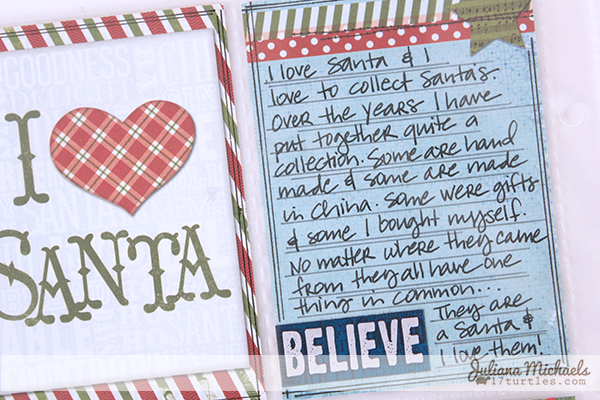 I
SANTA
I love Santa & I
love to collect Santas.
Over the years I have
put together quite a
collection. Some are hand
made & some are made
in China. Some were gifts
& some I bought myself.
No matter where they came
from they all have one
thing in common...
BELIEVE
They are
a Santa &
I love them!
Juliana Michaels
17turtles.com